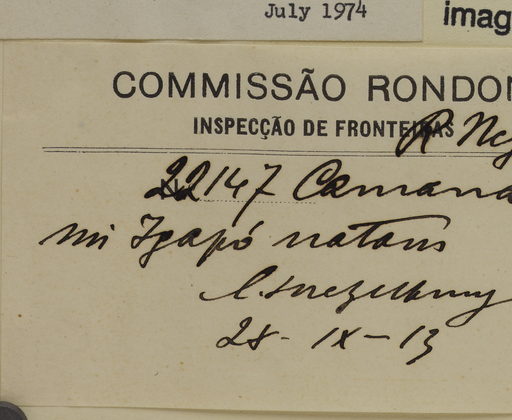 July 1974
imag
COMMISSÃO RONDON
INSPECÇÃO DE FRONTEIRAS
R Neg
22147 Camana
mi Igapó natans
28 - IX - 13